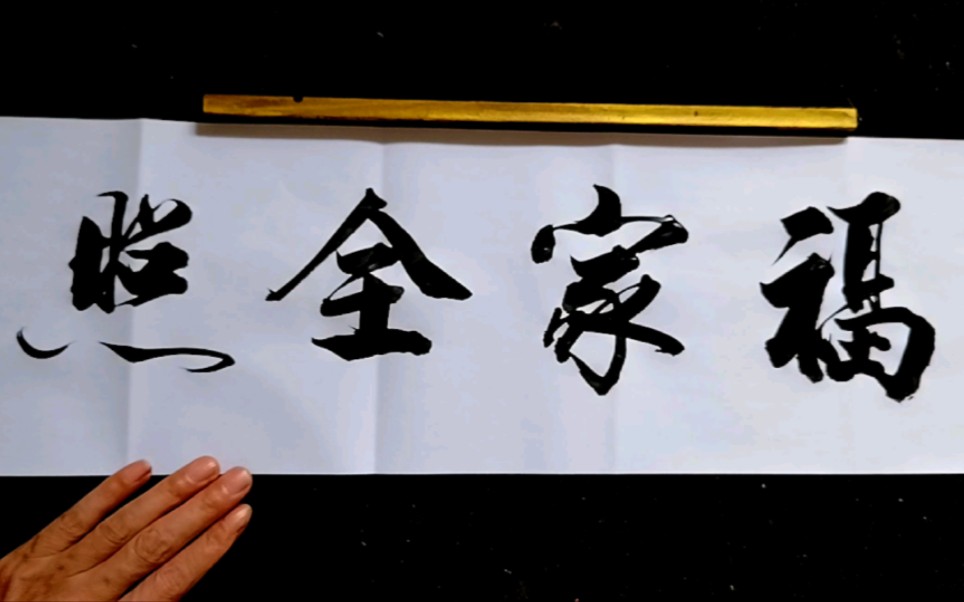 福家全照